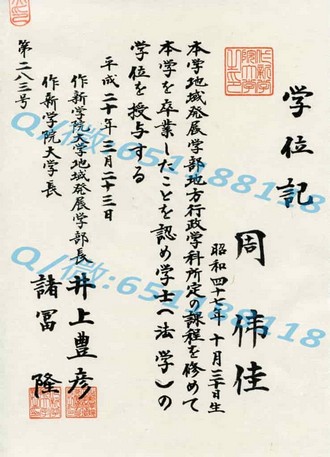 学位記
周偉佳
昭和四十七年十月三十日生
本学地域発展学部地方行政学科所定の課程を修めて
本学を卒業したことを認め学士(法学)の
学位を授与する
平成二十年三月二十三日
作新学院大学地域発展学部長 井上豊彦
作新学院大学長 諸冨隆
第二八三号
Q/微:651488118
Q/微:651488118